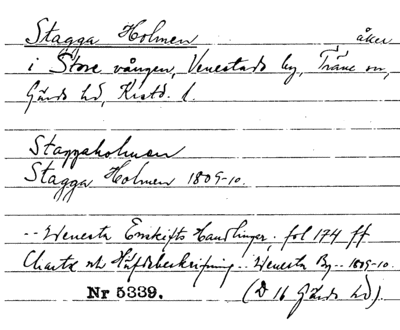 Stagga Holmen åker
i Store vången, Venestads by, Träne sn,
Gärds hd, Kristd. l.
Staggaholman
Stagga Holmen 1809-10.
-- Wenesta Enskifts Handlingar, fol 174 ff
Charta och Häfdebeskrifning .. Wenesta By -- 1809-10.
Nr 5339. (D 16 Gärds hd).